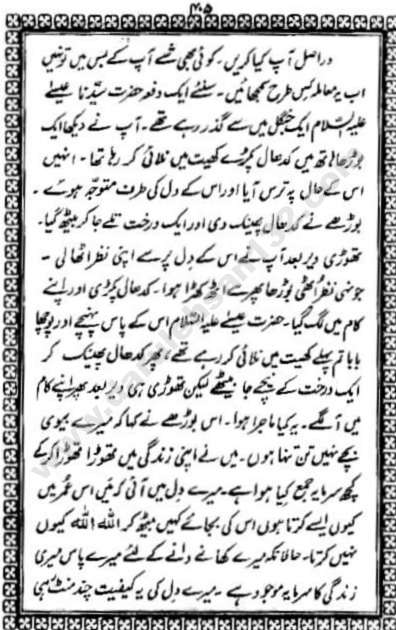 ۳۰۵
در اصل آپ کیا کریں۔ کوئی بھی شے آپ کے بس میں تو نہیں
اب یہ معاملہ کس طرح سمجھائیں۔ سنئے ایک دفعہ حضرت سیّدنا عیسےٰ
علیہ السّلام ایک جنگل میں سے گذر رہے تھے۔ آپ نے دیکھا ایک
بوڑھا ہاتھ میں کدھال پکڑے کھیت میں نلائی کر رہا تھا۔ انہیں
اس کے حال پہ ترس آیا اور اس کے دل کی طرف متوجّہ ہوئے۔
بوڑھے نے کدھال پھینک دی اور ایک درخت تلے جا کر بیٹھ گیا۔
تھوڑی دیر بعد آپ نے اس کے دل پر سے اپنی نظر اٹھا لی۔
جونہی نظر اٹھی بوڑھا پھر سے اٹھ کھڑا ہوا۔ کدھال پکڑی اور اپنے
کام میں لگ گیا۔ حضرت عیسےٰ علیہ السّلام اس کے پاس پہنچے اور پوچھا
بابا تم پہلے کھیت میں نلائی کر رہے تھے، پھر کدھال پھینک کر
ایک درخت کے نیچے جا بیٹھے لیکن تھوڑی ہی دیر بعد پھر اپنے کام
میں آ لگے۔ یہ کیا ماجرا ہوا۔ اس بوڑھے نے کہا کہ میرے بیوی
بچے نہیں تن تنہا ہوں۔ میں نے اپنی زندگی میں تھوڑا تھوڑا کر کے
کچھ سرمایہ جمع کیا ہوا ہے۔ میرے دل میں آئی کہ میں اس عمر میں
کیوں ایسے کرتا ہوں اس کی بجائے کہیں بیٹھ کر اللہ اللہ کیوں
نہیں کرتا۔ حالانکہ میرے کھانے دانے کے لئے میرے پاس میری
زندگی کا سرمایہ موجود ہے۔ میرے دل کی یہ کیفیت چند منٹ ہی